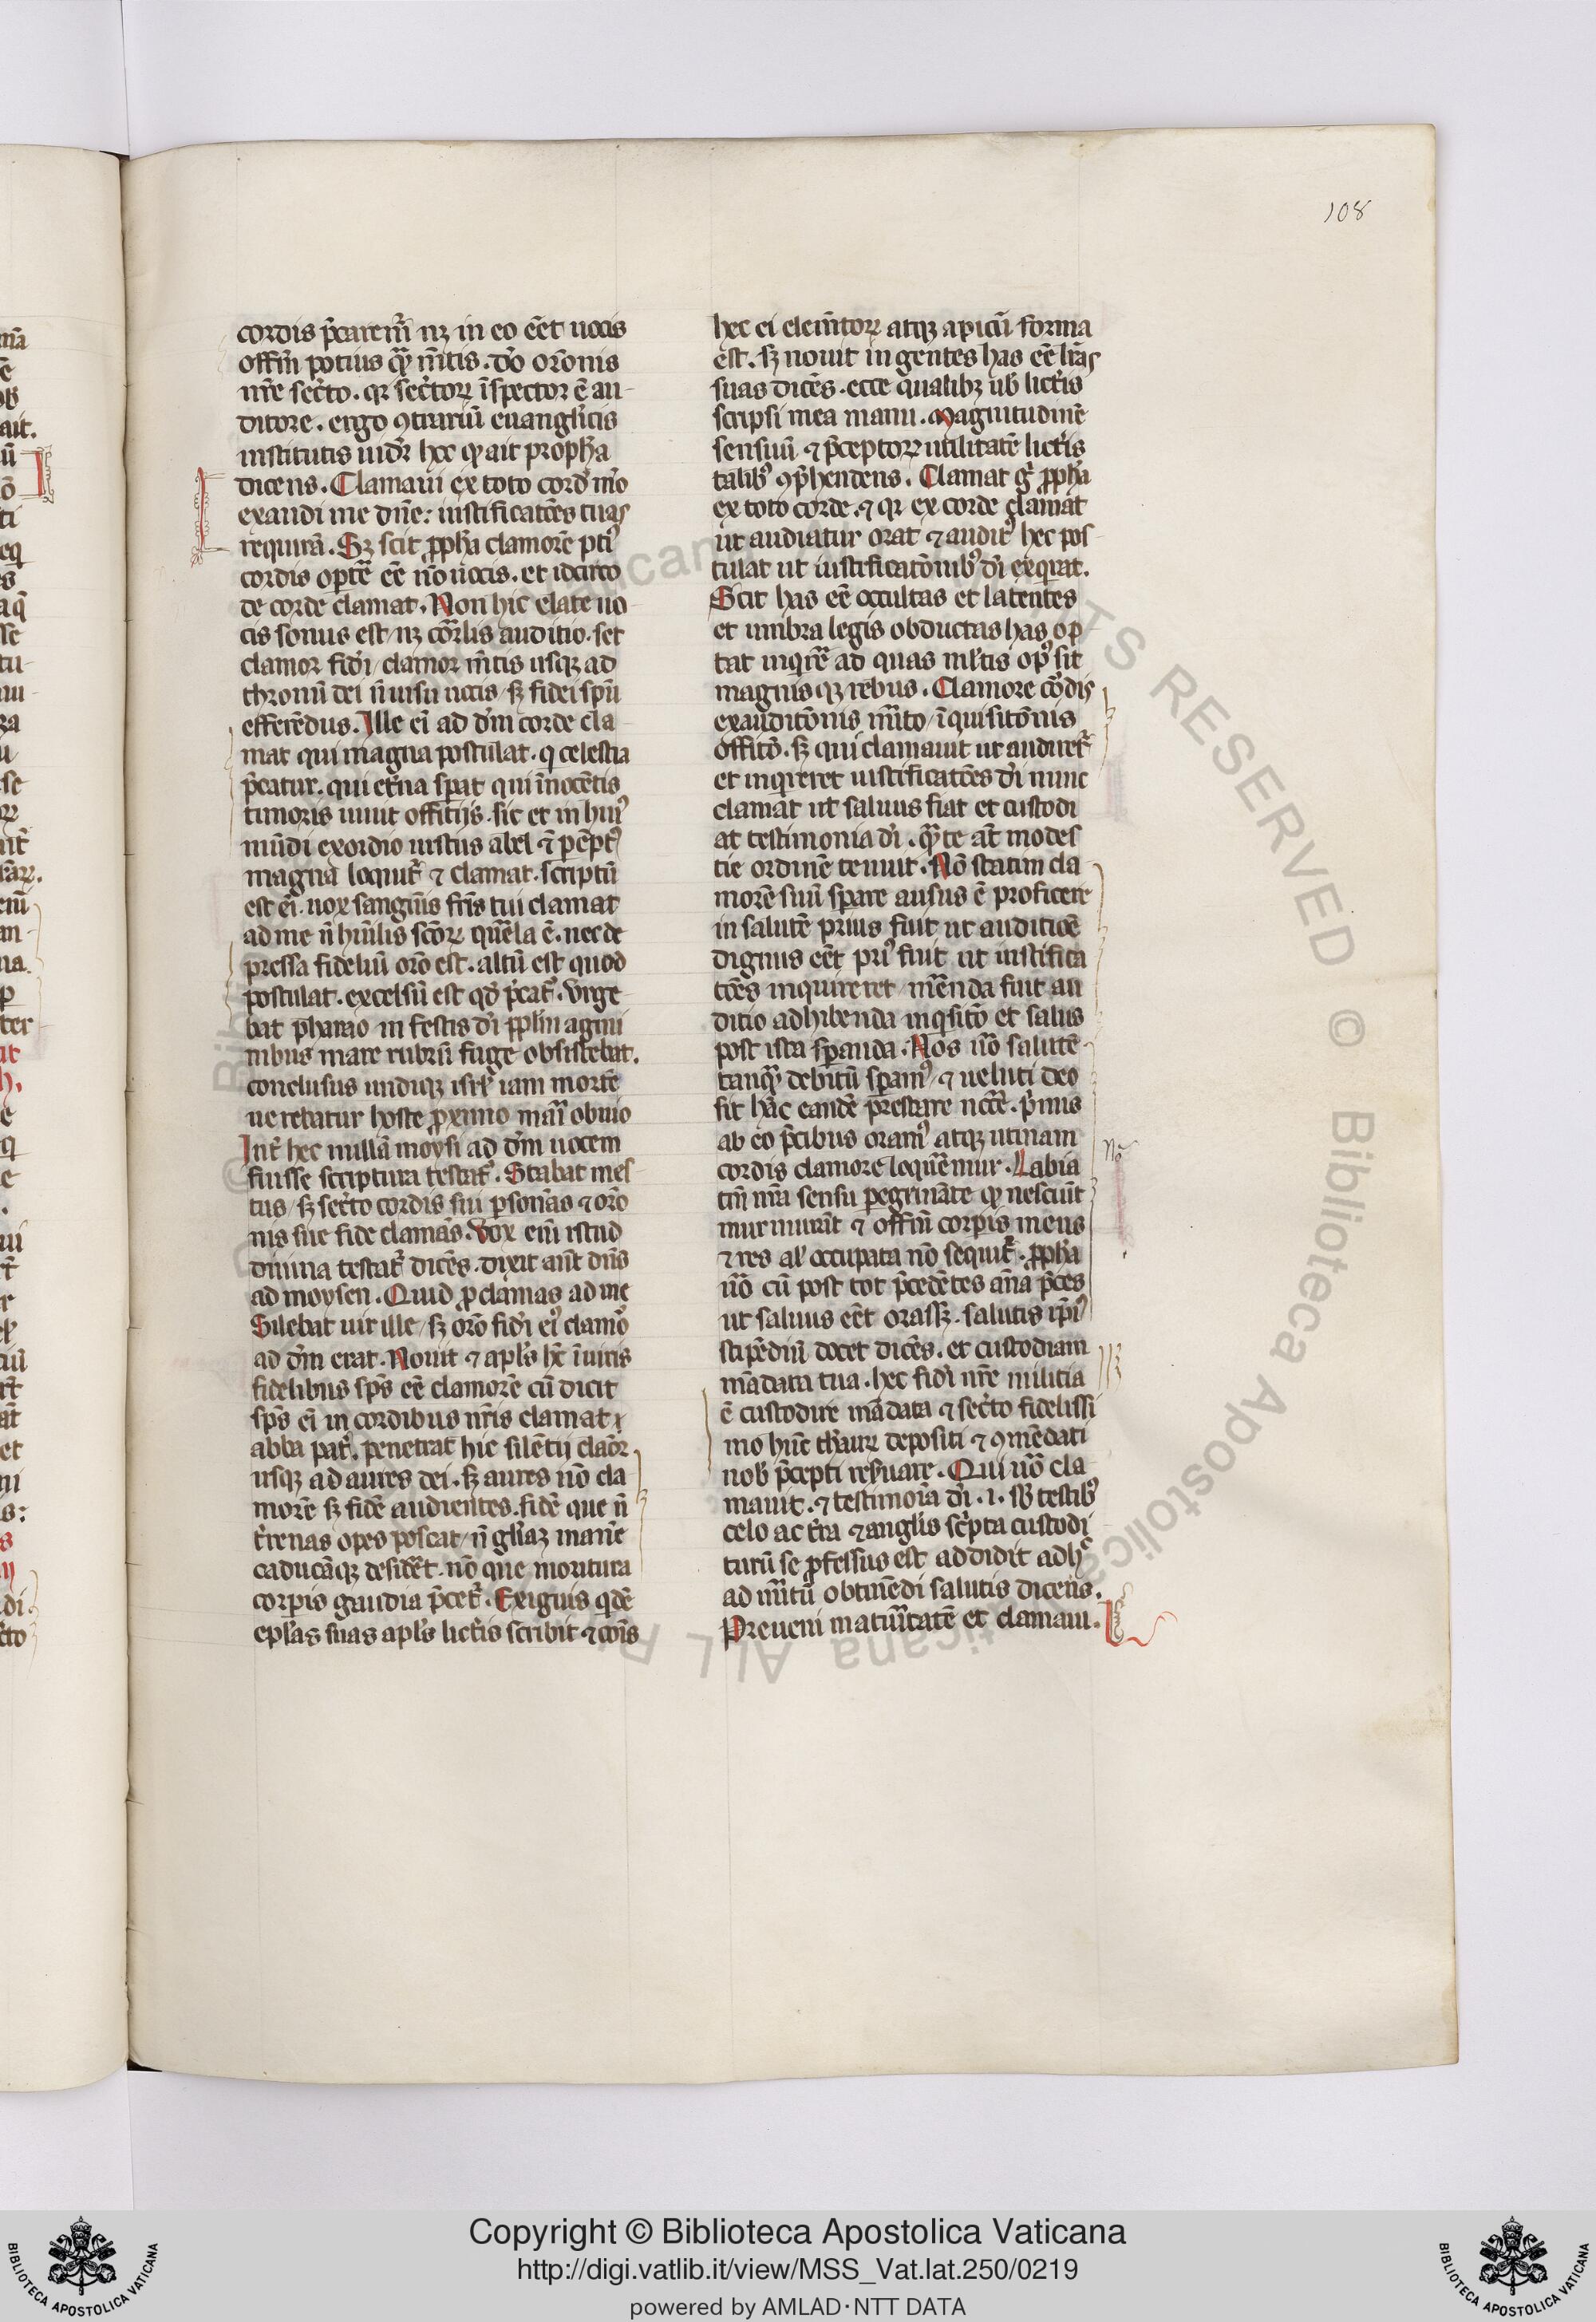 108
cordis p̄carem̄ nꝫ in eo eēt uocis
offm̄ potius qͣꝫ m̄tis. dō orōnis
nr̄e secͬto. qꝛ secͬtoꝝ īspector ē au-
ditore. ergo ꝯtrariū euangl̄icis
institutis uidr̄ hec qͥ ait proph̄a
dicens. Clamaui ex toto cord̓ m̄o
exaudi me dn̄e: iustificatōes tuas
requirā. Sꝫ scit ꝓph̄a clamorē ptī
cordis optē eē nō uocis. et idcirco
de corde clamat. Non hic elate uo
cis sonus est nꝫ cor̄lis auditio. set
clamor fid̓i / clamor m̄tis usqꝫ ad
thronū dei n̄ uisu uocis / sꝫ fidei sp̄u
efferēdus. Ille ei̓ ad dn̄m corde cla
mat qui magna postulat. q̓ celestia
p̄catur. qui et̓na sꝑat qui īnocētis
timoris uiuit offitijs. sic et in huiꝰ
mūdi exordio iustus abel ē p̄ēptꝰ
magna loquit̓ ⁊ clamat. scriptū
est ei̓. uox sangui̓s fr̄is tui clamat
ad me n̄ hūilis sc̄oꝝ quēla ē. nec de
pressa fideliū orō est. altū est quod
postulat. excelsū est qd̓ p̄cat̓. Vrge
bat pharao in festis d̓i ppl̄m agmi
nibus mare rubrū fuge obsistebat.
conclusus undiqꝫ isrl̓ iam mortē
uerebatur hoste ꝓximo mari̓ obuio
Int̓ hec nullā moysi ad dn̄m uocem
fuisse scriptura testat̓. Stabat mes
tus / sꝫ secͬto cordis sui ꝑsonās ⁊ orō
nis sue fide clamās. Vox em̄ istud
diuina testat̓ dicēs. dixit aūt dn̄s
ad moysen. Quid ꝓclamas ad me
Silebat uir ille / sꝫ orō fid̓i eiꝰ clamō
ad dn̄m erat. Nouit ⁊ apl̄s hc̄ īuitis
fidelibus sp̄s eē clamorē cū dicit
sp̄s ei̓ in cordibus nr̄is clamat
abba pat̓. penetrat hic silētij clāor
usqꝫ ad aures dei. sꝫ aures nō cla
morē sꝫ fidē audientes. fidē que n̄
t̓renas opes poscat / n̄ gl̄iaꝫ manē
caducāqꝫ desidēt. nō que moritura
corꝑis gaudia p̄cet̓. Exiguis qͥdē
epl̄as suas apl̄s lictīs scribit ⁊ coīs
hec ei elem̄toꝝ atqꝫ apicū forma
est. sꝫ nouit in gentes has eē lr̄as
suas dicēs. ecce qualibꝫ uob̓ lictīs
scripsi mea manu. Magnitudinē
sensuū ⁊ p̄ceptoꝝ utilitatē lictīs
talibꝰ ꝯp̄hendens. Clamat gͦ ꝓph̄a
ex toto corde. ⁊ qꝛ ex corde clamat
ut audiatur orat ⁊ auditꝰ hec pos
tulat ut iustificatōnibꝰ d̓i exqͥrat.
Scit has eē occultas et latentes
et umbra legis obductas has op
tat inqͥrē ad quas m̄ltis opꝰ sit
magnisqꝫ rebus. Clamore cōdis
exauditōnis m̄ito / īquisitōnis
offitō. sꝫ qui clamauit ut audiret̓
et inqͥreret iustificatōes d̓i nunc
clamat ut saluus fiat et custodi
at testimonia d̓i. qͣꝫte at̄ modes
tie ordinē tenuit. Nō statim cla
morē suū sꝑare ausus ē proficere
in salutē prius fuit ut auditiōe
dignus eēt priꝰ fuit ut iustifica
tōes inquireret / mēnda fuit au
ditio adhibenda inqͥsitō et salus
post ista sꝑanda. Nos ūo salutē
tanqͣꝫ debitū sꝑamꝰ ⁊ ueluti deo
sit hāc eandē prestare nc̄cē. p̄mus
ab eo p̄cibus oramꝰ atqꝫ utinam
cordis clamore loquēmur. Labia
tm̄ nr̄a sensu pegrināte qͥ nesciūt
murmurāt ⁊ offm̄ corꝑis meus
⁊ res al̓ occupata nō sequit̓. ꝓph̄a
ūo cū post tot p̄cedētes āna p̄ces
ut saluus eēt orassꝫ. salutis ip̄iꝰ
stipēdiū docet dicēs. et custodiam
mādata tua. hec fid̓i nr̄e militia
ē custodire mādata ⁊ secͬto fidelissi
mo hūc th̓auꝝ depositi ⁊ ꝯmēdati
nob̓ p̄cepti res̓uare. Qui ūo cla
mauit. ⁊ testimōia d̓i. i. sb̓ testibꝰ
celo ac t̓ra ⁊ angl̄is sc̓pta custodi
turū se ꝓfessus est addidit adhͨ
ad m̄itū obtinēdi salutis dicens.
Preueni maturitatē et clamaui.
Copyright © Biblioteca Apostolica Vaticana
http://digi.vatlib.it/view/MSS_Vat.lat.250/0219
powered by AMLAD·NTT DATA
BIBLIOTECA APOSTOLICA VATICANA
BIBLIOTECA APOSTOLICA VATICANA